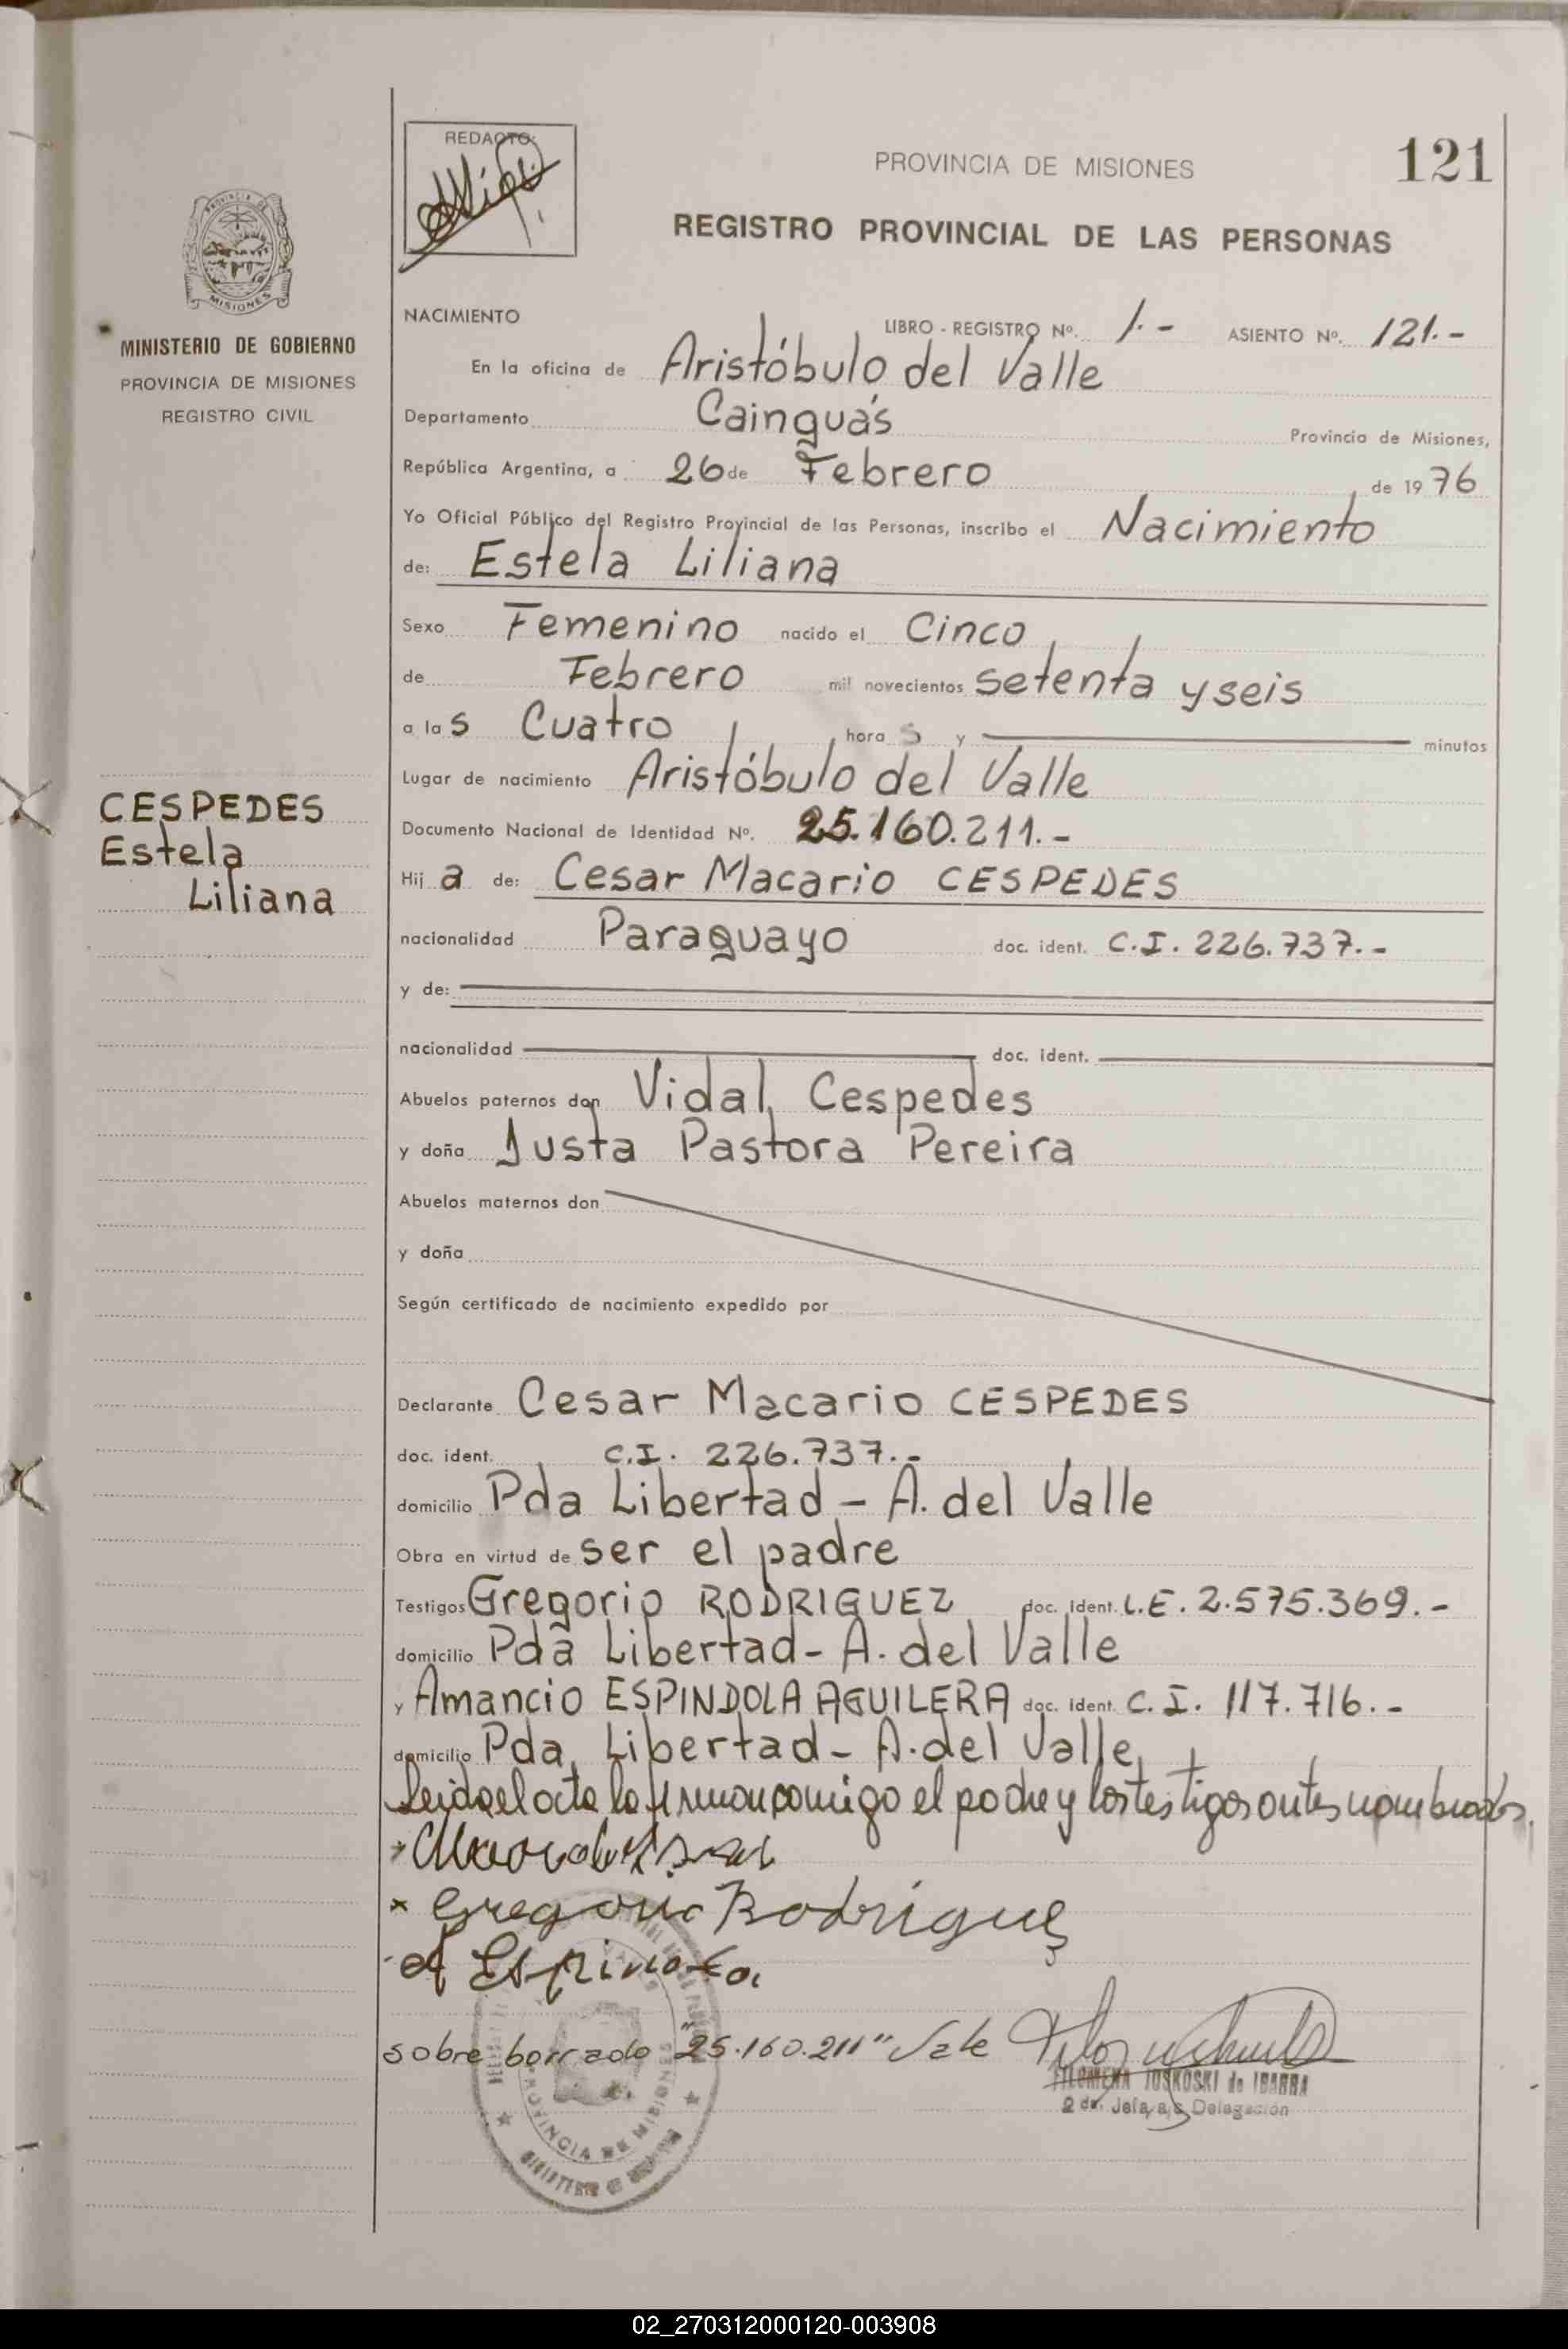 REDACTO:
PROVINCIA DE MISIONES
121
REGISTRO PROVINCIAL DE LAS PERSONAS
MISIONES
MINISTERIO DE GOBIERNO
PROVINCIA DE MISIONES
REGISTRO CIVIL
NACIMIENTO
LIBRO - REGISTRO Nº. 1.- ASIENTO Nº. 121.-
En la oficina de Aristóbulo del Valle
Departamento Cainguás Provincia de Misiones,
República Argentina, a 26 de Febrero de 1976
Yo Oficial Público del Registro Provincial de las Personas, inscribo el Nacimiento
de: Estela Liliana
Sexo Femenino nacido el Cinco
de Febrero mil novecientos setenta y seis
a las Cuatro horas y minutos
Lugar de nacimiento Aristóbulo del Valle
CESPEDES
Estela
Liliana
Documento Nacional de Identidad Nº. 25.160.211.-
Hija de: Cesar Macario CESPEDES
nacionalidad Paraguayo doc. ident. C.I. 226.737.-
y de:
nacionalidad doc. ident.
Abuelos paternos don Vidal Cespedes
y doña Justa Pastora Pereira
Abuelos maternos don
y doña
Según certificado de nacimiento expedido por
Declarante Cesar Macario CESPEDES
doc. ident. C.I. 226.737.-
domicilio Pda Libertad - A. del Valle
Obra en virtud de ser el padre
Testigos Gregorio RODRIGUEZ doc. ident. L.E. 2.575.369.-
domicilio Pda Libertad - A. del Valle
y Amancio ESPINDOLA AGUILERA doc. ident. C.I. 117.716.-
domicilio Pda Libertad - A. del Valle
Leida el acta la firman comigo el padre y los testigos antes nombrados.
x Gregorio Rodrigue
sobre borrado "25.160.211" Vale
FILOMENA IUSKOSKI de IBARRA
2 da. Jefa a/c Delegación
PROVINCIA DE MISIONES
02_270312000120-003908